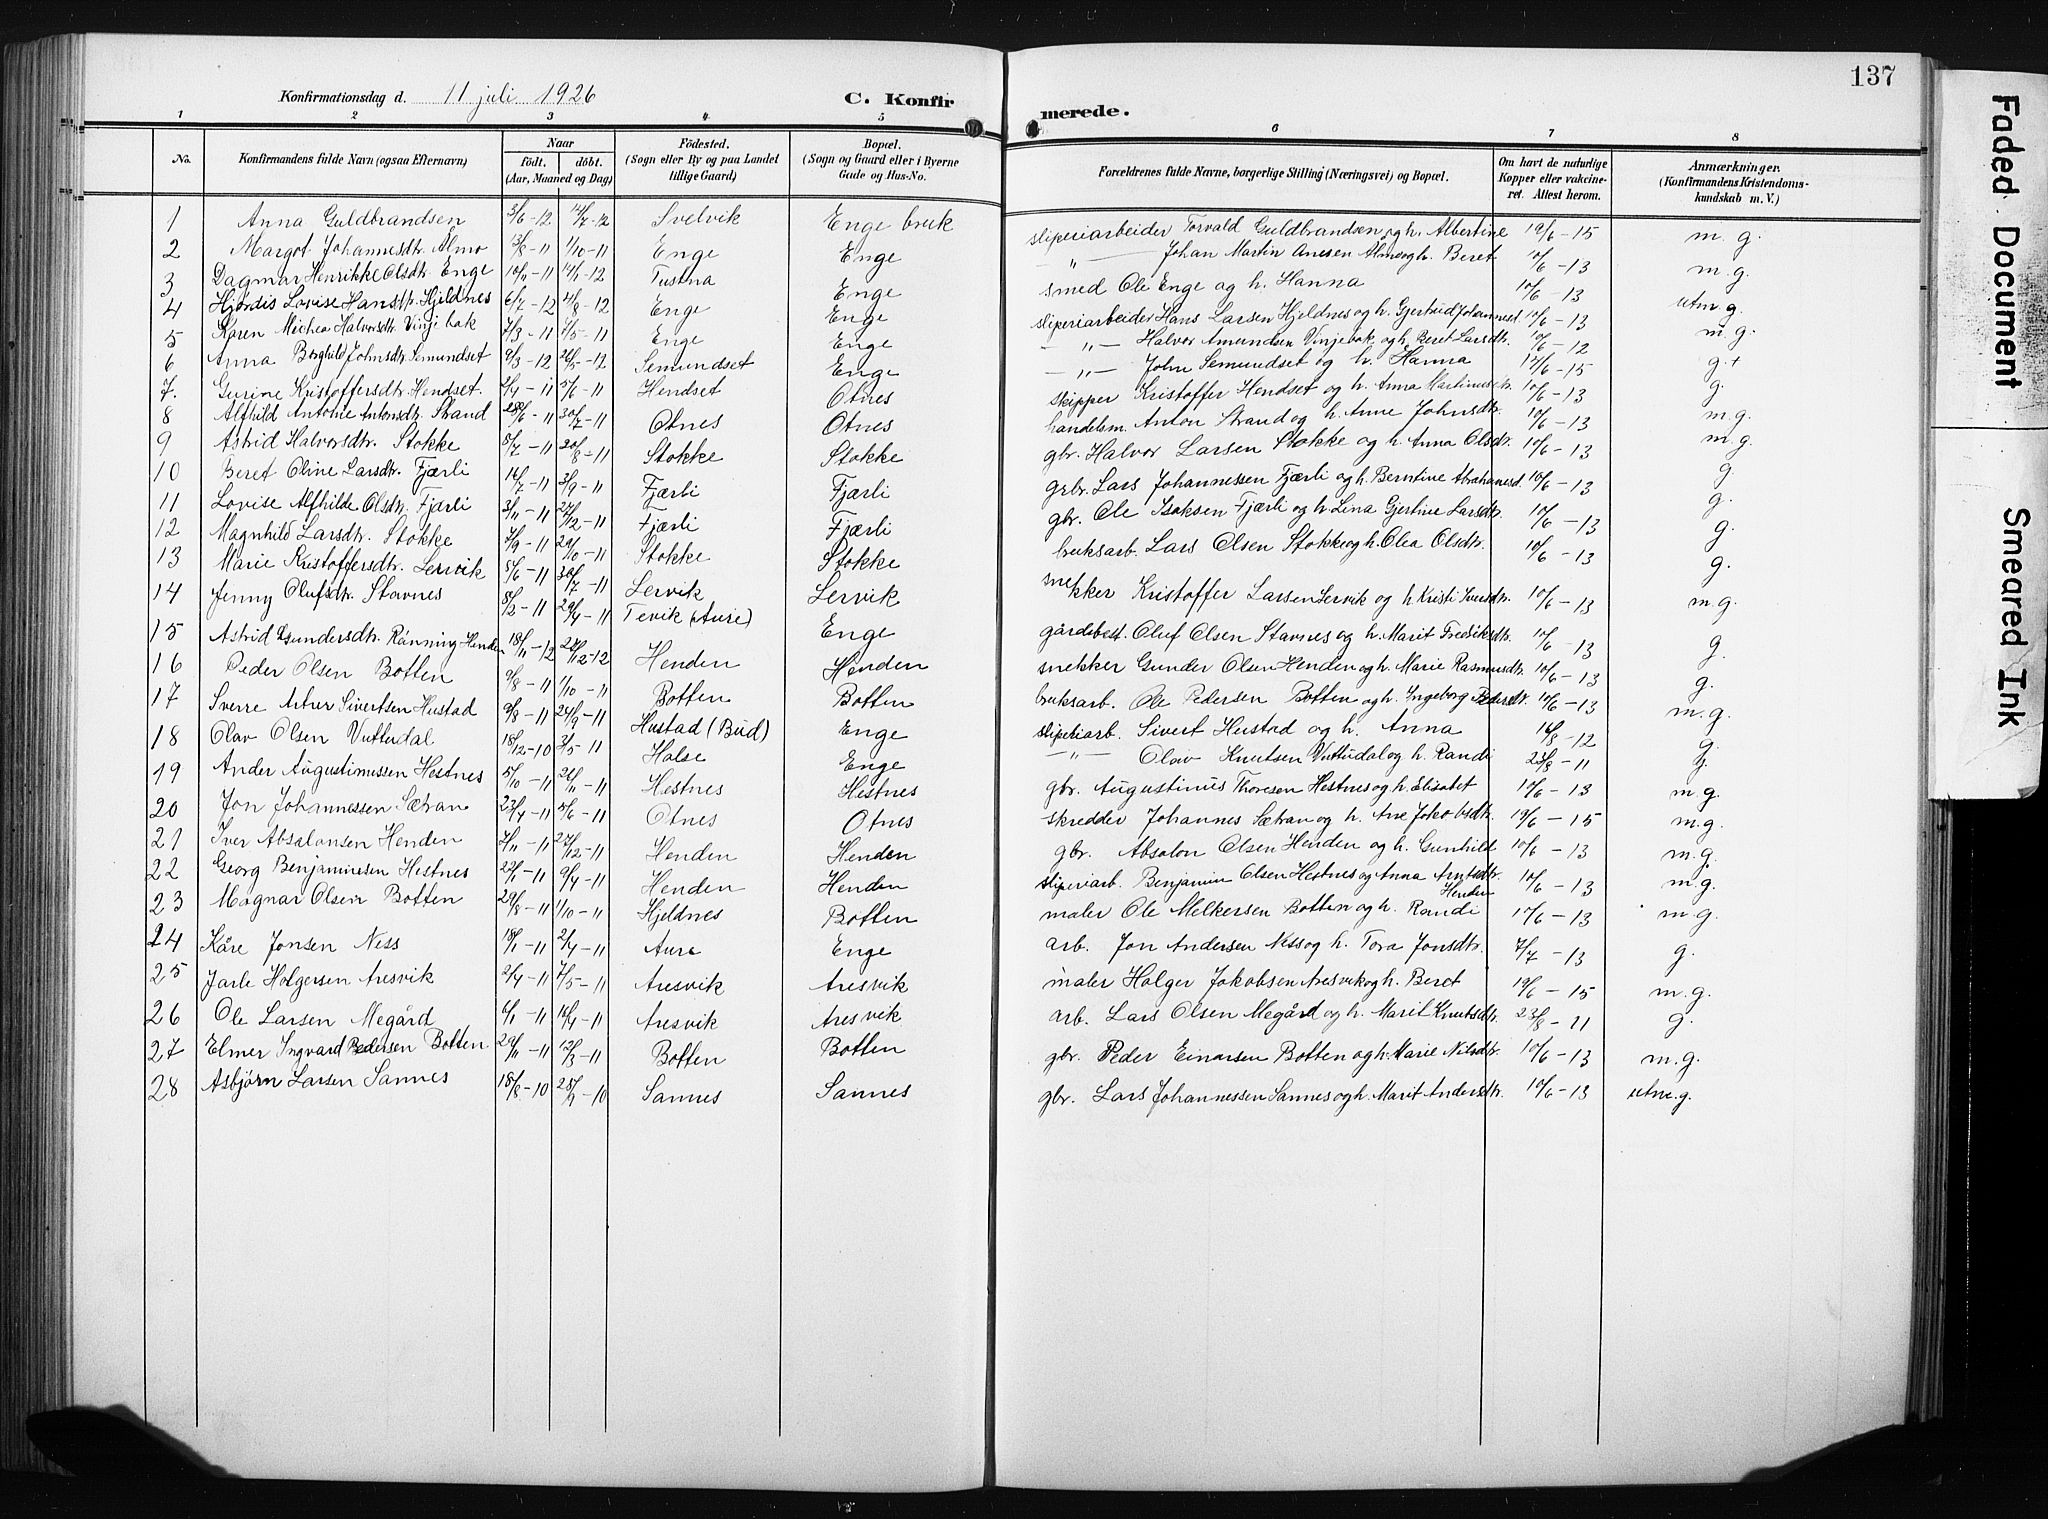 137
Konfirmationsdag d. 11 juli 1926 C. Konfirmerede.
1 2 3 4 5 6 7 8
No. Konfirmandens fulde Navn (ogsaa Efternavn) Naar født, døbt. (Aar, Maaned og Dag) Fødested. (Sogn eller By og paa Landet tillige Gaard) Bopæl. (Sogn og Gaard eller i Byerne Gade og Hus-No. Forældrenes fulde Navne, borgerlige Stilling (Næringsvei) og Bopæl. Om havt de naturlige Kopper eller vakcineret. Attest herom. Anmærkninger. (Konfirmandens Kristendomskundskab m. V.)
1 Anna Guldbrandsen 3/6-12 14/7-12 Svelvik Enge bruk sliperiarbeider Torvald Guldbrandsen og h. Albertine 19/6-15 m.g.
2 Margot Johannesdtr. Almo 3/8-11 1/10-11 Enge Enge " — Johan Martin Anesen Almo og h. Beret 10/6-13 m.g.
3 Dagmar Henrikke Olsdtr. Enge 10/11-11 14/1-12 Tustna Enge smed Ole Enge og h. Hanna 10/6-13 utm.g.
4 Hjørdis Lovise Hansdtr. Hjeldnes 6/7-12 4/8-12 Enge Enge sliperiarbeider Hans Larsen Hjeldnes og h. Gjertrud Johannesd. 10/6-13 m.g.
5 Karen Michea Halvorsdtr. Vinjebak 7/3-11 7/5-11 Enge Enge — " — Halvor Amundsen Vinjebak og h. Beret Larsdtr. 10/6-12
6 Anna Borghild Johnsdtr. Semundset 9/3-12 26/5-12 Semundset Enge — " — John Semundset og h. Hanna 14/6-15 g.+
7. Gurine Kristoffersdtr. Hendset. 2/4-11 5/6-11 Hendset Otnes skipper Kristoffer Hendset og h. Anna Martinusdtr. 10/6-13 g.
8 Alfhild Antonie Antonsdtr. Strand 28/6-11 30/7-11 Otnes Otnes handelsm. Anton Strand og h. Anne Johnsdtr. 10/6-13 m.g.
9 Astrid Halvorsdtr. Stokke 8/7-11 20/8-11 Stokke Stokke gbr. Halvor Larsen Stokke og h. Anna Olsdtr. 10/6-13 m.g.
10 Beret Oline Larsdtr. Fjærli 16/7-11 3/9-11 Fjærli Fjærli grbr. Lars Johannessen Fjærli og h. Berntine Abrahamsd. 10/6-13 g.
11 Lovise Alfhilde Olsdtr. Fjærli 3/11-11 27/12-11 Fjærli Fjærli gbr. Ole Isaksen Fjærli og h. Lina Gjertine Larsdtr. 10/6-13 g.
12 Magnhild Larsdtr. Stokke 7/9-11 29/10-11 Stokke Stokke bruksarb. Lars Olsen Stokke og h. Olea Olsdtr. 10/6-13 g.
13 Marie Kristoffersdtr. Lervik 8/6-11 30/7-11 Lervik Lervik snekker Kristoffer Larsen Lervik og h Kristi Iversdtr. 10/6-13 g.
14 Jenny Olufsdtr. Stavnes 8/2-11 29/4-11 Tevik (Aure) Enge gårdsbest. Oluf Olsen Stavnes og h. Marit Fredriksdtr. 10/6-13 m.g.
15 Astrid Gundersdtr. Rånning Henden 18/11-12 22/12-12 Henden Henden snekker Gunder Olsen Henden og h. Marie Rasmusdtr. 10/6-13 g.
16 Peder Olsen Botten 9/8-11 1/10-11 Botten Botten bruksarb. Ole Pedersen Botten og h. Ingeborg Pedersdtr. 10/6-13 g.
17 Sverre Artur Sivertsen Hustad 9/8-11 24/9-11 Hustad (Bud) Enge sliperiarb. Sivert Hustad og h. Anna 16/8-12 m.g.
18 Olav Olsen Vuttudal 18/12-10 3/5-11 Halse Enge — " — Olav Knutsen Vuttudal og h. Randi 23/8-11 g.
19 Ander Augustinussen Hestnes 5/10-11 26/11-11 Hestnes Hestnes gbr. Augustinus Thoresen Hestnes og h. Elisabet 10/6-13 m.g.
20 Jon Johannessen Sætran 23/4-11 5/6-11 Otnes Otnes skredder Johannes Sætran og h. Ane Jakobsdtr. 19/6-15 m.g.
21 Iver Absalonsen Henden 7/11-11 27/12-11 Henden Henden gbr. Absalon Olsen Henden og h. Gunhild 10/6-13 m.g.
22 Georg Benjaminsen Hestnes 22/1-11 9/4-11 Henden Henden sliperiarb. Benjamin Olsen Hestnes og Anna Arntsdtr. Henden 10/6-13 m.g.
23 Magnar Olsen Botten 29/8-11 1/10-11 Hjeldnes Botten maler Ole Melkersen Botten og h. Randi 17/6-13 m.g.
24 Kåre Jonsen Ness 18/1-11 2/4-11 Aure Enge arb. Jon Andersen Ness og h. Tora Jonsdtr. 7/7-13 g.
25 Jarle Holgersen Aresvik 2/4-11 7/5-11 Aresvik Aresvik maler Holger Jakobsen Aresvik og h. Beret 19/6-15 m.g.
26 Ole Larsen Megård 6/1-11 16/4-11 Aresvik Aresvik arb. Lars Olsen Megård og h. Marit Knutsdtr. 23/8-11 g.
27 Elmer Ingvard Pedersen Botten 29/11-11 12/3-11 Botten Botten gbr. Peder Einarsen Botten og h. Marie Nilsdtr. 10/6-13 m.g.
28 Asbjørn Larsen Sannes 18/8-10 25/9-10 Sannes Sannes gbr. Lars Johannessen Sannes og h. Marit Andersdtr. 10/6-13 utm.g.
Faded Document
Smeared Ink